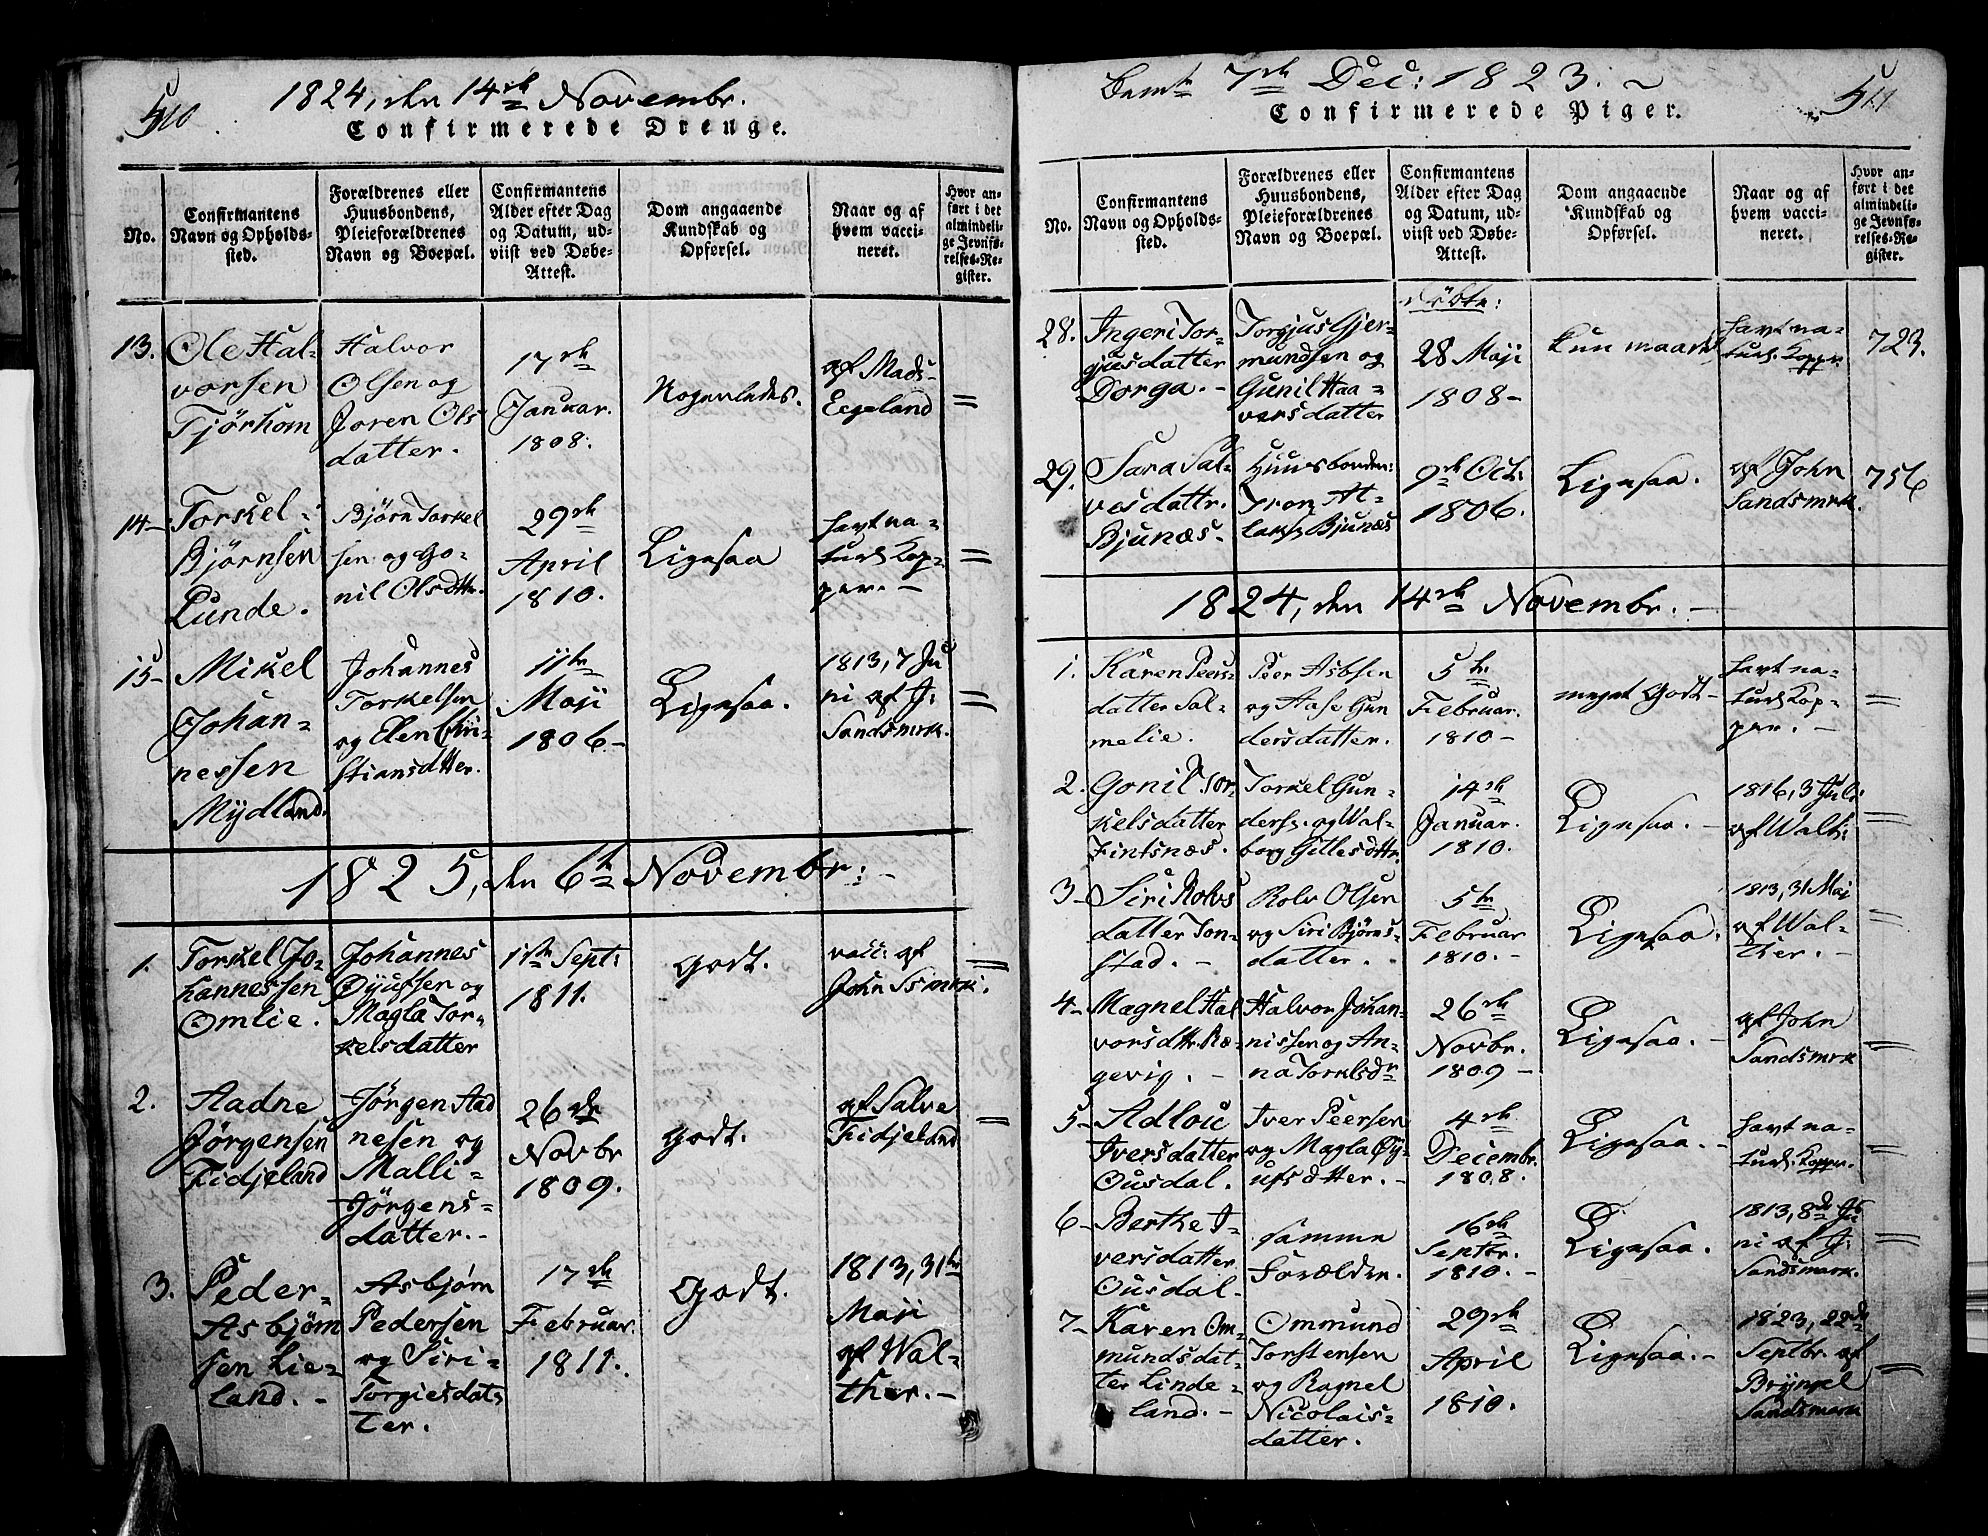 510
1824, den 14de Novembr.
Confirmerede Drenge.
No.
Confirmantens
Navn og Opholds-
sted.
Forældrenes eller
Huusbondens,
Pleieforældrenes
Navn og Boepæl.
Confirmantens
Alder efter Dag
og Datum, ud-
viist ved Døbe-
Attest.
Dom angaaende
Kundskab og
Opførsel.
Naar og af
hvem vacci-
neret.
Hvor an-
ført i det
almindeli-
ge Jevnfø-
relses-Re-
gister.
13.
Ole Hal-
vorsen
Tjørhom
Halvor
Olsen og
Joren Ols
datter.
17de
Januar.
1808.
Nogenledes.
af Mads
Eegeland
=
14-
Torkel
Bjørnsen
Lunde.
Bjørn Torkel
sen og Go-
nil Olsdttr.
29de
April
1810.
Ligesaa
havt na-
turl. Kop-
per. -
=
15-
Mikel
Johan-
nessen
Mydland.
Johannes
Torkelsen
og Elen Chri-
stiansdtter.
11te
Maji
1806-
Ligesaa.
1813, 7 Ju
ni af J:
Sandsmrk.
=
1825, den 6te Novembr: -
1.
Torkel Jo-
hannessen
Omlie.
Johannes
Øyufsen og
Magla Tor-
kelsdatter
1ste Sept:
1811.
Godt.
vacc: af
John Ssmrk.
=
2.
Aadne
Jørgensen
Fidjeland
Jørgen Aad
nesen og
Malli-
Jørgens-
datter. -
26de
Novbr
1809.
Godt.
af Salve
Fidjeland
=
3.
Peder-
Asbjørn
sen Lie-
land. -
Asbjørn
Pedersen
og Siri-
Torgiesdat-
ter.
17de
Februar.
1811.
Godt.
1813, 31te
Maji
af Wal-
ther. -
7de Dec: 1823. ~
511
Confirmerede Piger.
No.
Confirmantens
Navn og Opholds-
sted.
Forældrenes eller
Huusbondens,
Pleieforældrenes
Navn og Boepæl.
Confirmantens
Alder efter Dag
og Datum, ud-
viist ved Døbe-
Attest.
Dom angaaende
Kundskab og
Opførsel.
Naar og af
hvem vacci-
neret.
Hvor an-
ført i det
almindeli-
ge Jevnfø-
relses-Re-
gister.
28.
Ingeri Tor-
gjusdatter
Dorga. -
Torgjus Gjer-
mundsen og
Gunil Haa-
versdatter
døbte:
28 Maji
1808-
kun maadl
havt na-
turl. Kopper.
723.
29.
Sara Sal-
vesdattr.
Bjunæs.
Huusbonden:
Tron At-
laks. Bjunæs
9de Oct:
1806.
Ligesaa.
af John
Sandsmrk.
756
1824, den 14de Novembr. -
1.
Karen Peers-
datter Sal-
melie.
Peer Asbsen
og Aase Gun
dersdatter.
5te
Februar.
1810-
meget Godt-
havt na-
turl. Kop-
per. -
=
2.
Gonil Tor-
kelsdatter
Fintsnæs.
Torkel Gun-
ders. og Wal-
borg Gitlesdttr.
14de
Januar.
1810.
Ligesaa. -
1816, 3 Juli
af Walt:
=
3-
Siri Rolvs
datter Ton-
stad. -
Rolv Olsen
og Siri Bjørns-
datter.
5te
Februar
1810. -
Ligesaa.
1813, 31 Maj
af Wal-
ther. -
=
4-
Magnel Hal
vorsdttr. Ræ-
gevig. -
Halvor Johan-
nissen og An-
na Torkelsdr
26de
Novbr.
1809-
Ligesaa. -
af John
Sandsmrk
=
5-
Adloic
Iversdatter
Ousdal.
Iver Peersen
og Magla Øy-
ufsdtter. -
4de
Decembr.
1808.
Ligesaa. -
havt na-
turl. Kopper.
=
6-
Berthe I-
versdatter
Ousdal-
samme
Forældre.
16de
Septbr.
1810. -
Ligesaa.
1813, 8de Ju
ni af J:
Sandsmark.
=
7-
Karen Om-
mundsdat-
ter Linde-
land. -
Ommund
Torstensen
og Ragnel
Nicolais-
datter.
29de
April
1810.
Ligesaa. -
1823, 22de
Septbr. af
Bryngel
Sandsmark
=